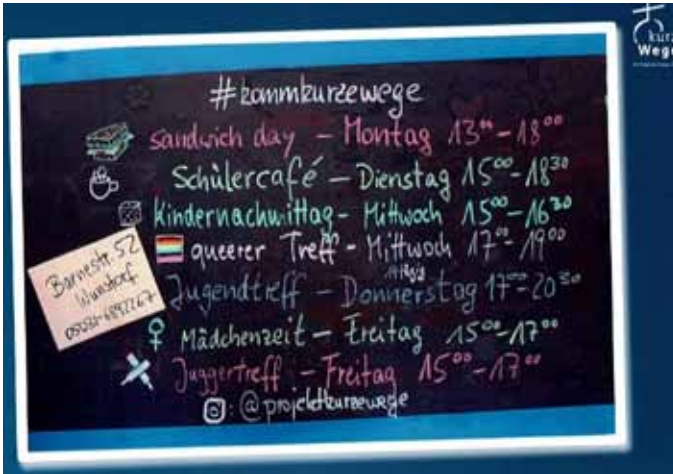 kurze
Wege
#kommkurzewege
sandwich day – Montag 13⁰⁰–18⁰⁰
Schülercafé – Dienstag 15⁰⁰–18³⁰
Kindernachmittag – Mittwoch 15⁰⁰–16³⁰
queerer Treff – Mittwoch 17⁰⁰–19⁰⁰
Jugendtreff – Donnerstag 17⁰⁰–20³⁰
Mädchenzeit – Freitag 15⁰⁰–17⁰⁰
Juggertreff – Freitag 15⁰⁰–17⁰⁰
: @projektkurzewege
Barnestr. 52
Wunstorf